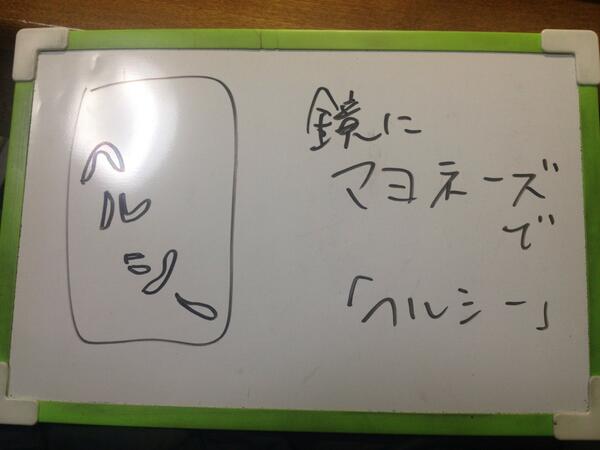 ヘルシー
鏡に
マヨネーズ
で
「ヘルシー」